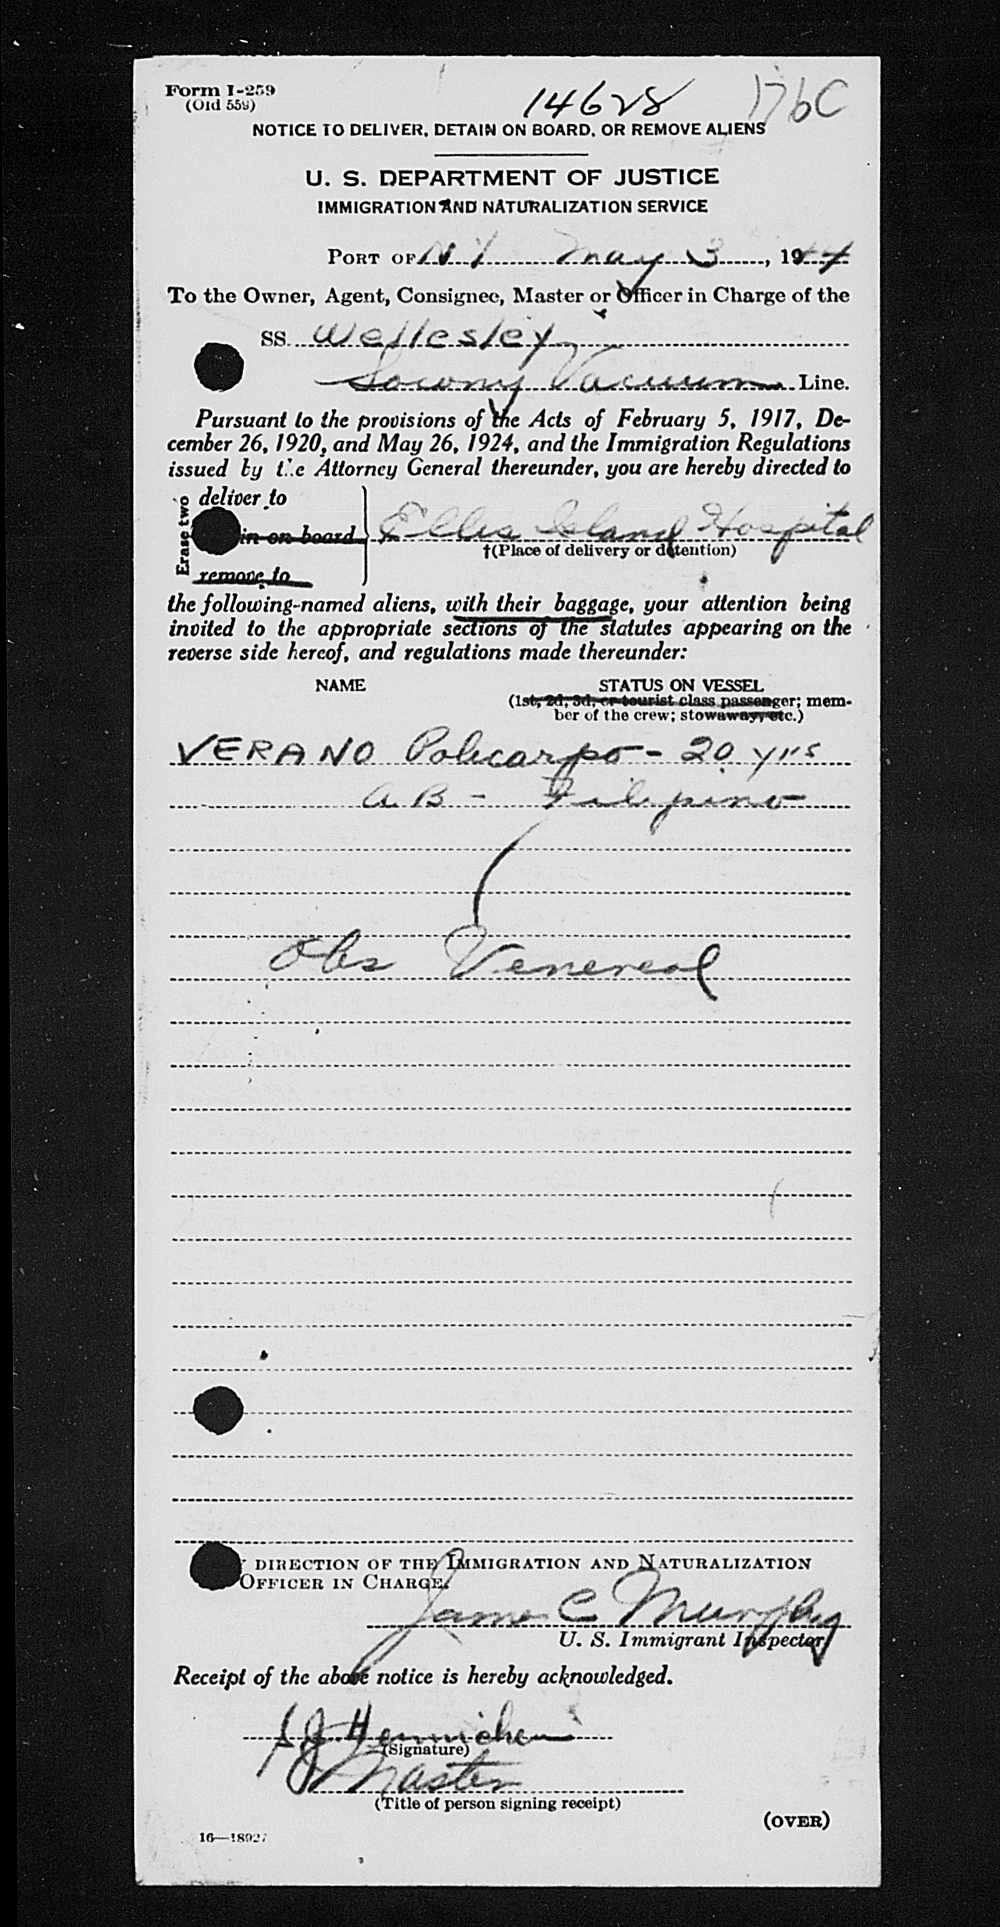 Form I-259
(Old 559)
14628
176C
NOTICE TO DELIVER, DETAIN ON BOARD, OR REMOVE ALIENS
U. S. DEPARTMENT OF JUSTICE
IMMIGRATION AND NATURALIZATION SERVICE
PORT OF N Y May 3, 1944
To the Owner, Agent, Consignee, Master or Officer in Charge of the
SS. Wellesley
Socony Vacuum Line.
Pursuant to the provisions of the Acts of February 5, 1917, De-
cember 26, 1920, and May 26, 1924, and the Immigration Regulations
issued by the Attorney General thereunder, you are hereby directed to
Erase two
deliver to
in on board
remove to
Ellis Island Hospital
†(Place of delivery or detention)
the following-named aliens, with their baggage, your attention being
invited to the appropriate sections of the statutes appearing on the
reverse side hereof, and regulations made thereunder:
NAME STATUS ON VESSEL
(1st, 2d, 3d, or tourist class passenger; mem-
ber of the crew; stowaway, etc.)
VERANO Policarpo - 20 yrs
A.B - Filipino
Obs Venereal
DIRECTION OF THE IMMIGRATION AND NATURALIZATION
OFFICER IN CHARGE.
James C Murphy
U. S. Immigrant Inspector
Receipt of the above notice is hereby acknowledged.
(Signature)
Master
(Title of person signing receipt)
(OVER)
16—18927